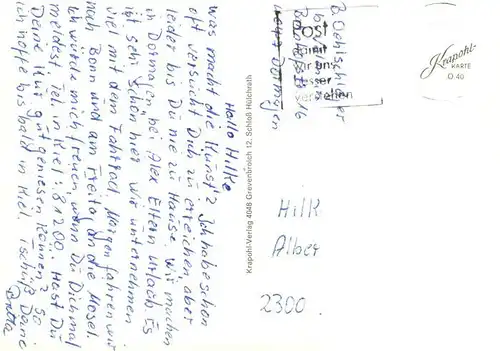 Hallo Hilke
was macht die Kunst? Ich habe schon
oft versucht Dich zu erreichen aber
leider bis Du nie zu Hause. Wir machen
in Dormagen bei Alex Eltern urlaub. Es
ist sehr Schön hier. Wir unternehmen
viel mit dem Fahrrad. Morgen fahren wir
nach Bonn und am Freitag an die Mosel.
Ich würde mich freuen wenn Du Dich mal
meldest. Tel. in Kiel: 81200. Hast Du
Deine Kur gut geniesen können? So
ich hoffe bis bald in Kiel. Tschüß Deine
Britta
Krapohl-Verlag 4048 Grevenbroich 12, Schloß Hülchrath
Post
nimmt
wir uns
besser
verstellen
Dormagen
Krapohl-
KARTE
D 40
Hilk
Alber
2300